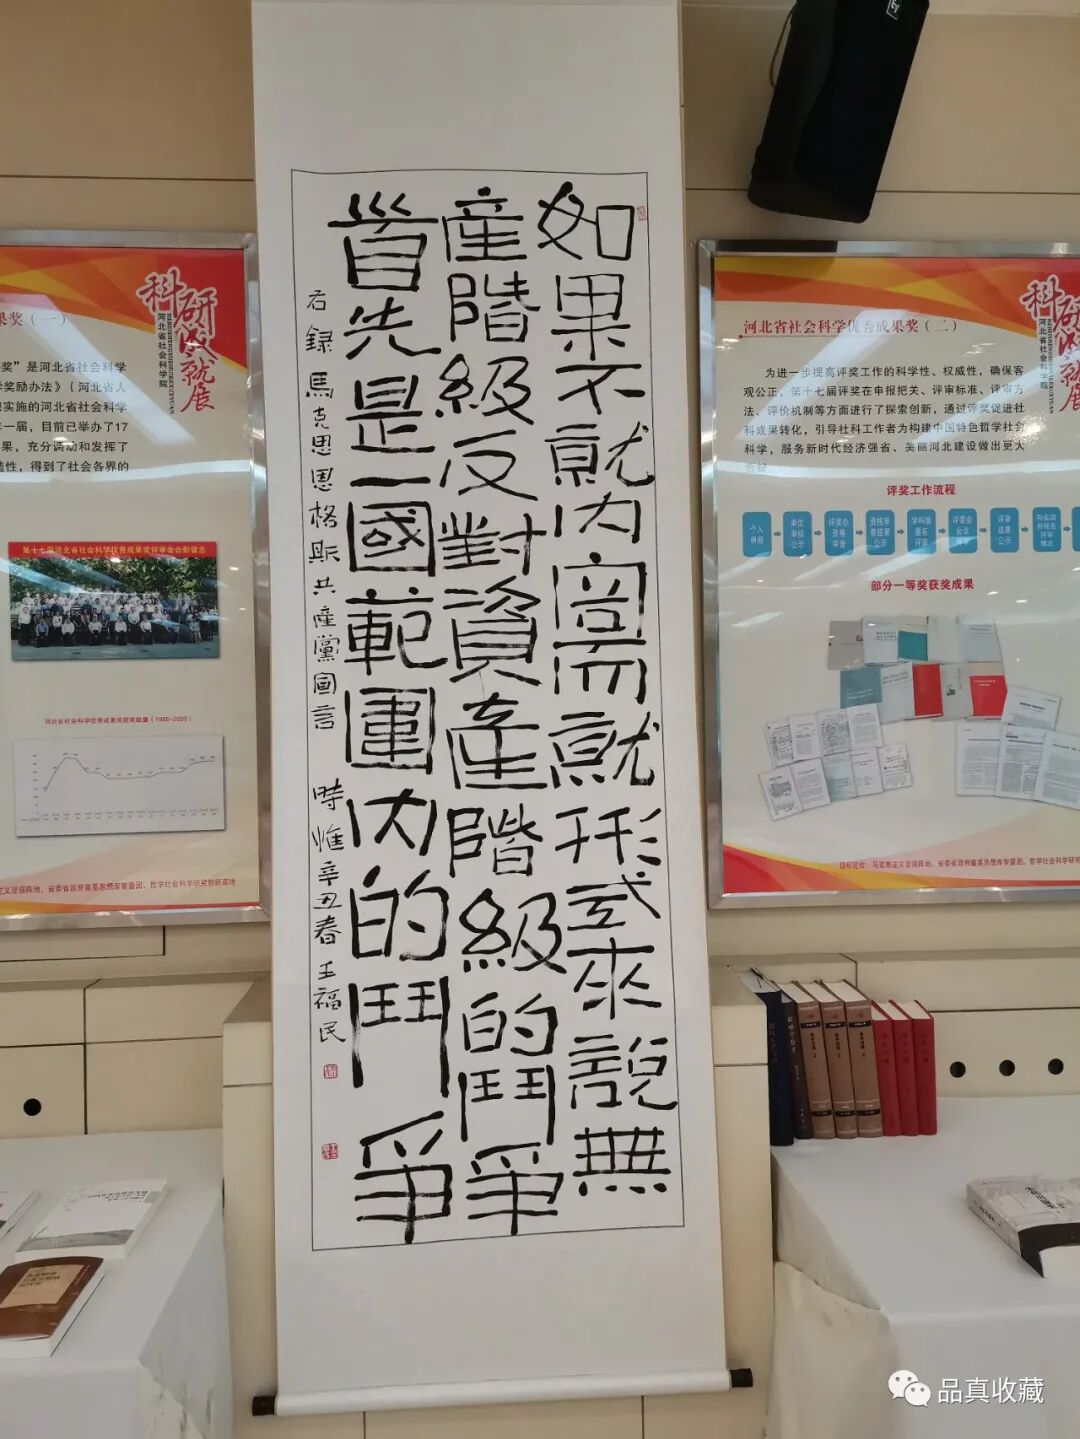 如果不就内容而就形式来說無
産階級反對資産階級的鬥争
首先是一國範圍内的鬥争
右録馬克思恩格斯共産黨宣言 時惟辛丑春王福民
果奖（一）
科研成就展
河北省社会科学院
奖”是河北省社会科学
学奖励办法》（河北省人
实施的河北省社会科学
一届，目前已举办了17
果，充分调动和发挥了
造性，得到了社会各界的
第十七届河北省社会科学优秀成果奖评审会合影留念
河北省社会科学优秀成果奖获奖数量（1985-2020）
义坚强阵地、省委省政府重要思想库智囊团、哲学社会科学研究创新高地
科研成就展
河北省社会科学院
河北省社会科学优秀成果奖（二）
为进一步提高评奖工作的科学性、权威性，确保客
观公正，第十七届评奖在申报把关、评审标准、评审方
法、评价机制等方面进行了探索创新，通过评奖促进社
科成果转化，引导社科工作者为构建中国特色哲学社会
科学，服务新时代经济强省、美丽河北建设做出更大
贡献。
评奖工作流程
个人申报
单位审核公示
评奖办资格审查
资格审查结果公示
学科组重名评审
评委会会议评审
评审结果公示
部分一等奖获奖成果
目标定位：马克思主义坚强阵地、省委省政府重要思想库智囊团、哲学社会科学研
品真收藏